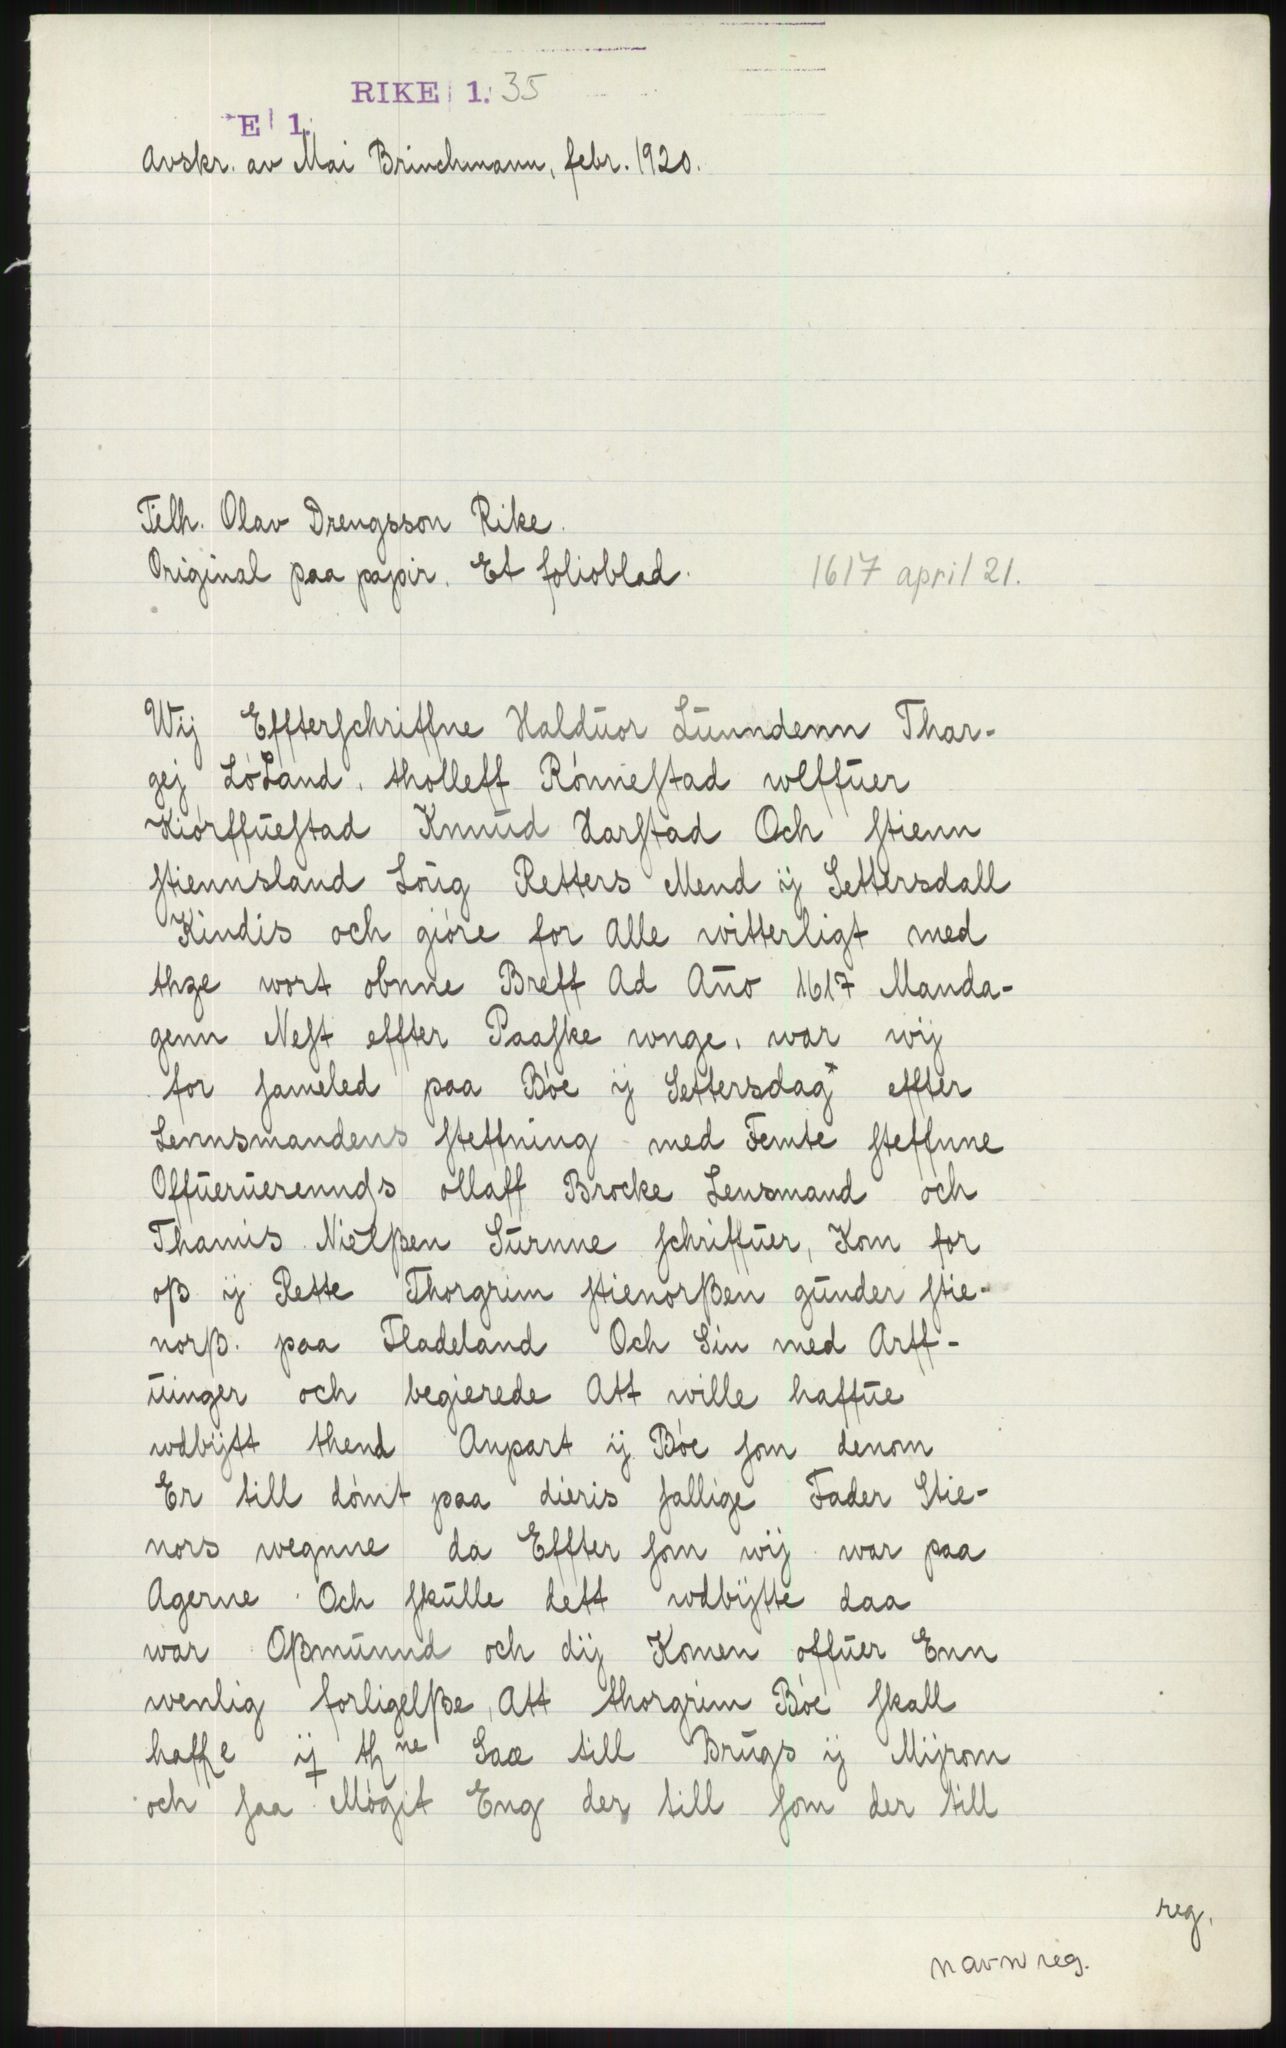 RIKE 1. 35
E 1.
Avskr. av Mai Brinchmann, febr. 1920.
Tilh. Olav Drengsson Rike.
Original paa papir. Et folioblad.
1617 april 21.
Wij Effterschriffne Halduor Lunndenn Thar-
gej LöLand, tholleff Rönnestad wlffuer
Kiörffuestad Knnud Harstad Och stienn
stiennsland Loug Retters Mend ij Settersdall
Kindis och giöre for Alle witterligt med
thze wort obnne Breff Ad Año 1617 Manda-
genn Nest effter Paaske wnge, war wij
for sameled paa Böe ij Settersdag* effter
Lennsmandens steffning med Femte steffnne
Offueruerennds ollaff Brocke Lensmand och
Thamis Nielßen Surnne schriffuer, Kom for
oß ij Rette Thorgrim stienorßen gunder stie-
norß. paa Fladeland Och Sin med Arff-
uinger och begierede Att wille haffue
wdbijtt thend Anpart ij Böe som denom
Er till dömt paa dieris sallige Fader Stie-
nors wegnne da Effter som wij war paa
Agerne Och skulle dett wdbijtte daa
war Oßmunnd och dij Komen offuer Enn
wenlig forligelße, Att thorgrim Böe skall
haffe ij thne Saa till Brugs ij Mijrom
och saa Mögit Eng der till som der till
reg.
navnreg.